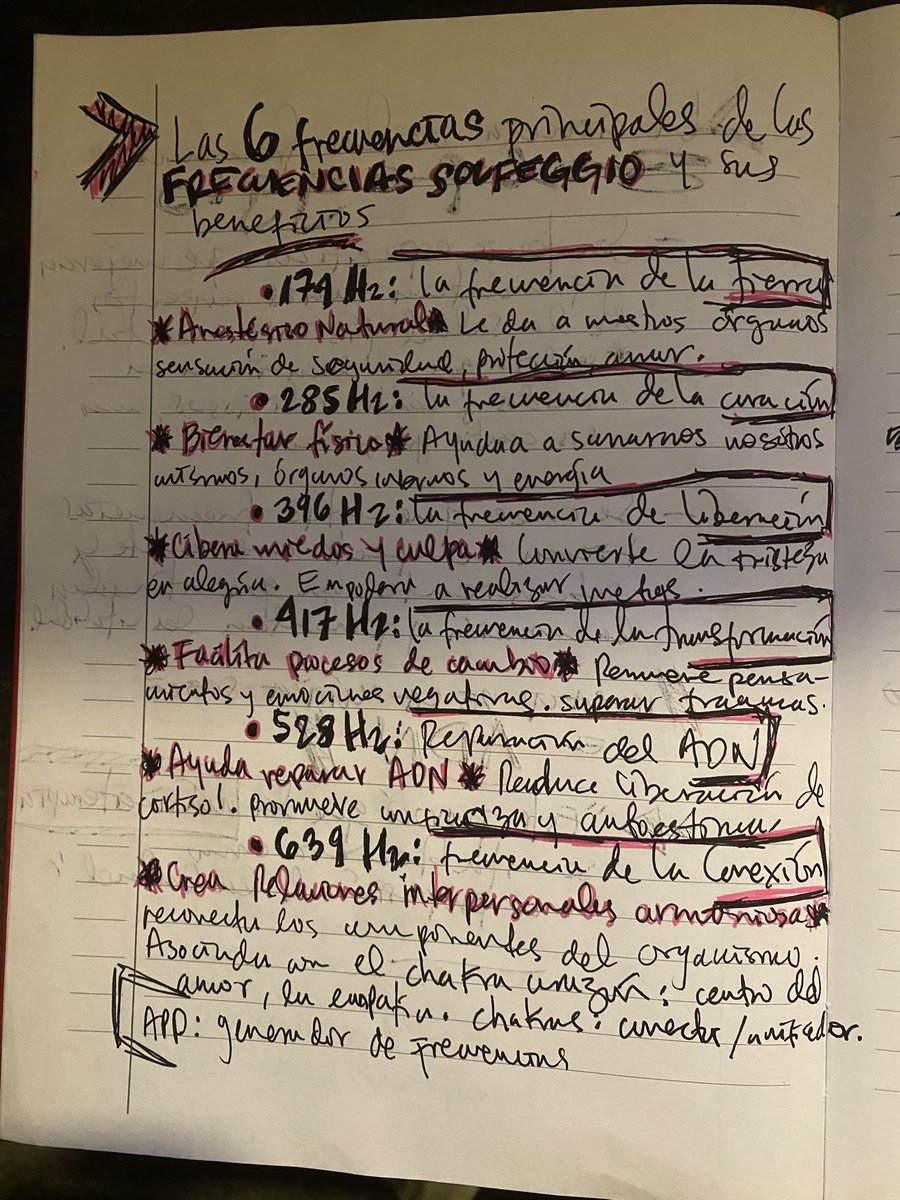 Las 6 frecuencias principales de las
FRECUENCIAS SOLFEGGIO y sus
beneficios
• 174 Hz: la frecuencia de la tierra
*Anestésico Natural* Le da a nuestros órganos
sensación de seguridad, protección, amor.
• 285 Hz: la frecuencia de la curación
*Bienestar físico* Ayuda a sanarnos nosotros
mismos, órganos internos y energía
• 396 Hz: la frecuencia de liberación
*Libera miedos y culpa* Convierte la tristeza
en alegría. Empodera a realizar metas.
• 417 Hz: la frecuencia de la transformación
*Facilita procesos de cambio* Remueve pensa-
mientos y emociones negativas. superar traumas.
• 528 Hz: Reparación del ADN
*Ayuda reparar ADN* Reduce liberación de
cortisol. promueve confianza y autoestima
• 639 Hz: frecuencia de la Conexión
*Crea Relaciones interpersonales armoniosas*
reconecta los componentes del organismo.
Asociada con el chakra corazón: centro del
amor, la empatía. chakras: conector/unificador.
APP: generador de frecuencias